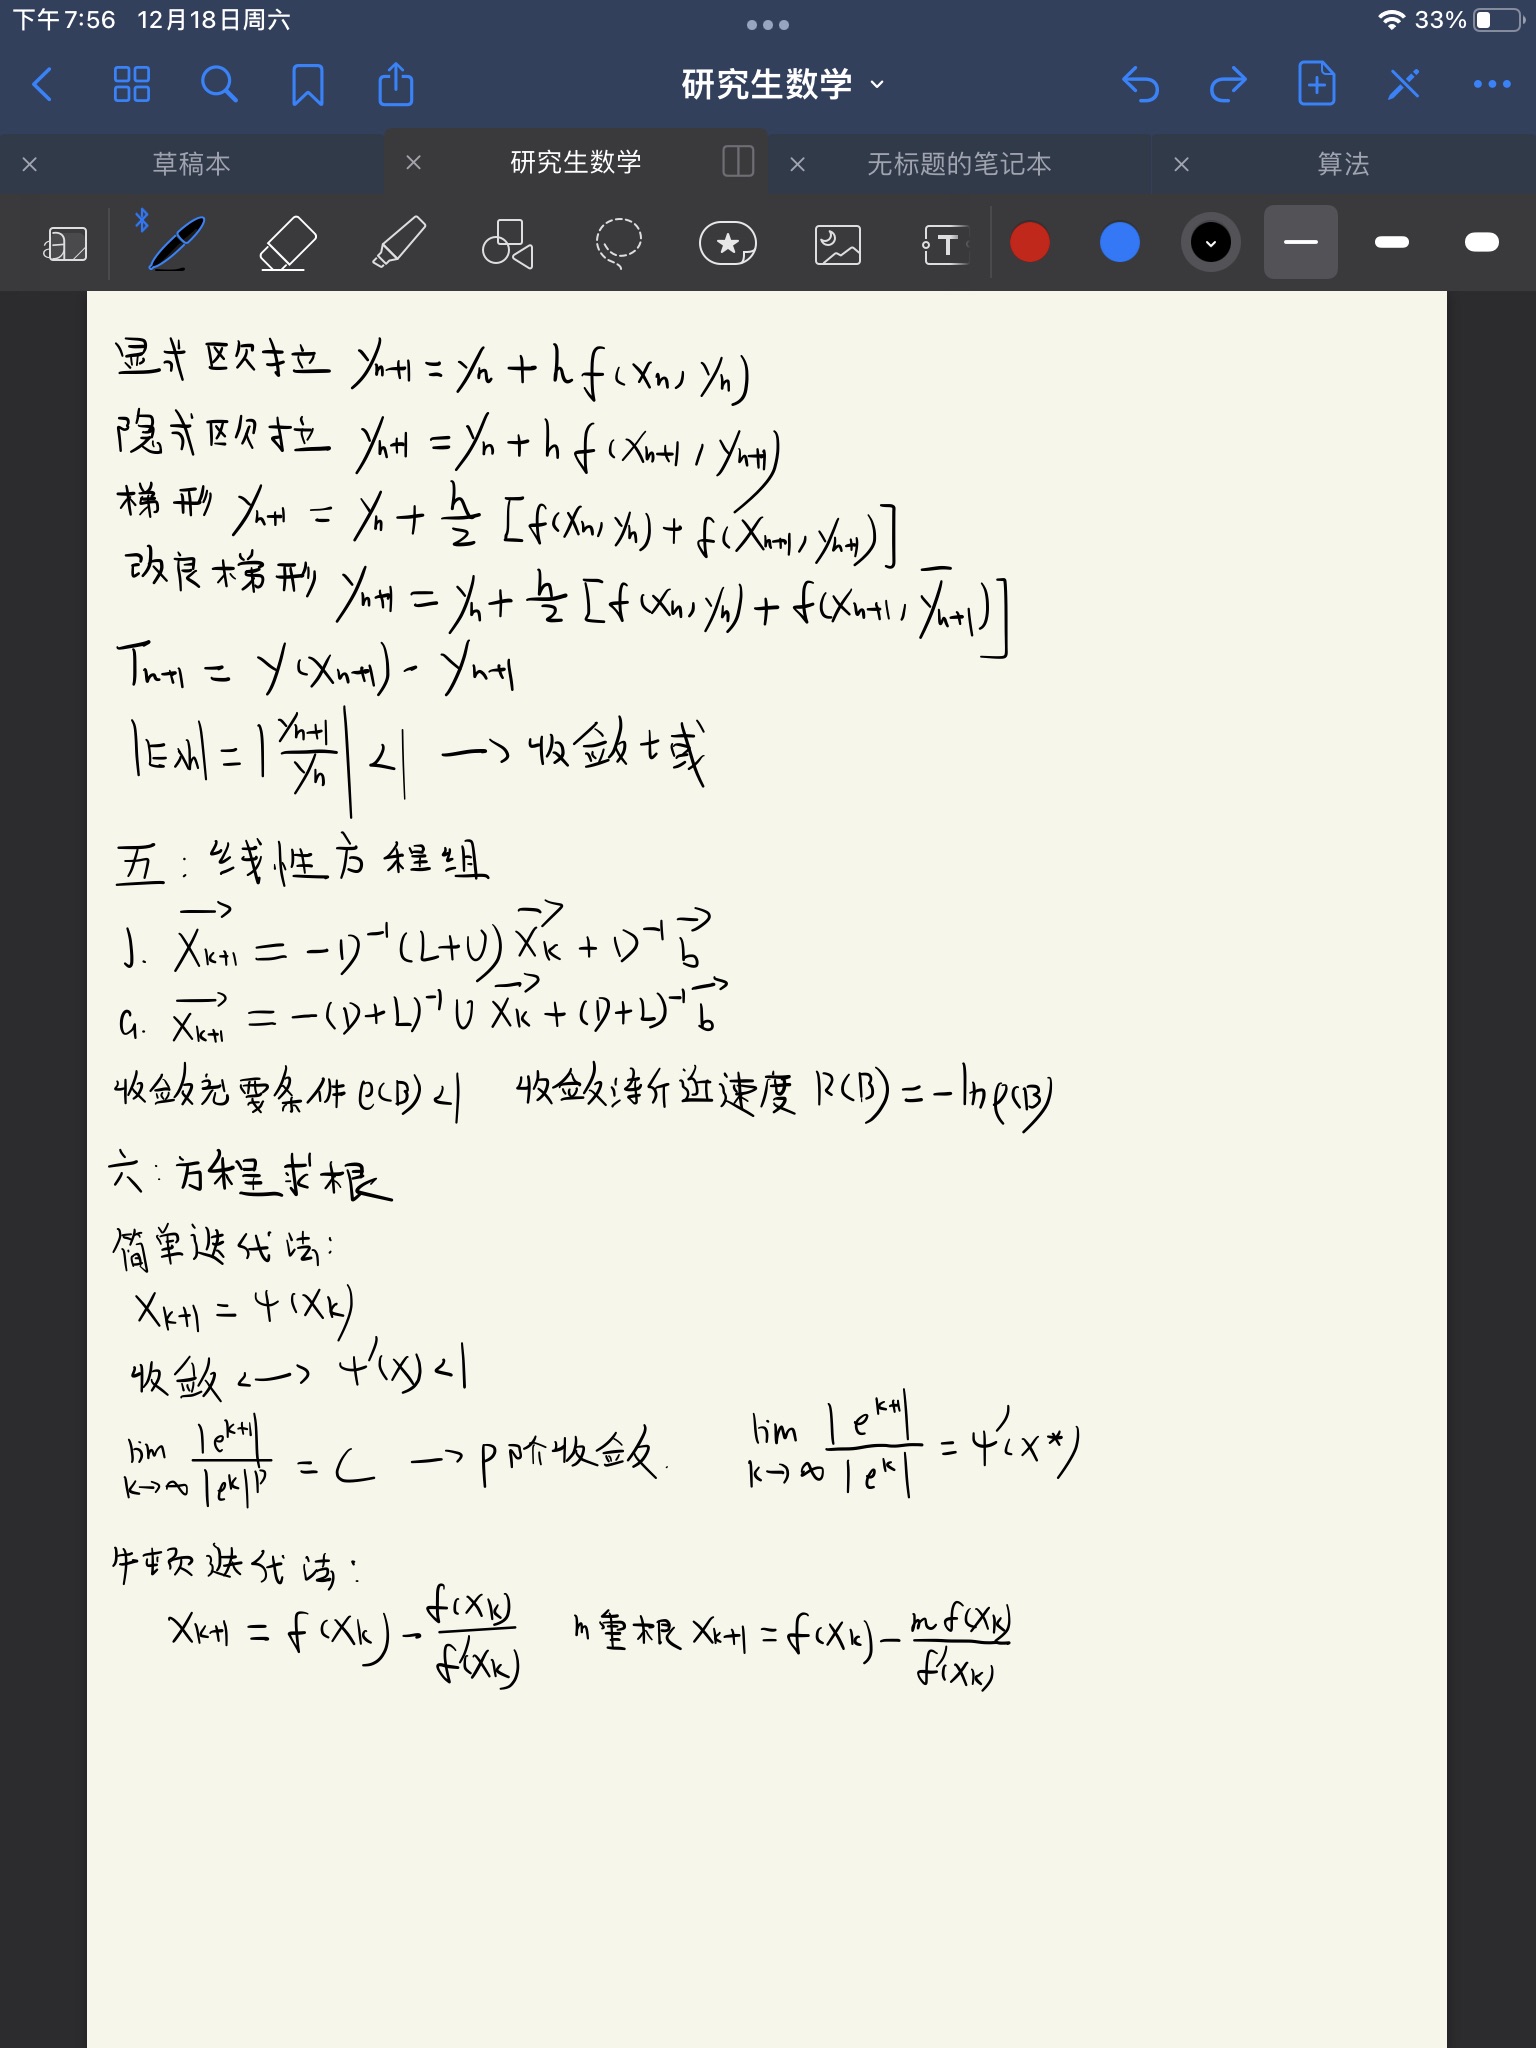 下午7:56 12月18日周六 33%
研究生数学
草稿本 研究生数学 无标题的笔记本 算法
T
显式欧拉 yₙ₊₁ = yₙ + h f(xₙ, yₙ)
隐式欧拉 yₙ₊₁ = yₙ + h f(xₙ₊₁, yₙ₊₁)
梯形 yₙ₊₁ = yₙ + h/2 [f(xₙ, yₙ) + f(xₙ₊₁, yₙ₊₁)]
改良梯形 yₙ₊₁ = yₙ + h/2 [f(xₙ, yₙ) + f(xₙ₊₁, ȳₙ₊₁)]
Tₙ₊₁ = y(xₙ₊₁) - yₙ₊₁
|Eλh| = |yₙ₊₁/yₙ| < 1 → 收敛域
五: 线性方程组
J. x⃗ₖ₊₁ = -D⁻¹(L+U) x⃗ₖ + D⁻¹ b⃗
G. x⃗ₖ₊₁ = -(D+L)⁻¹ U x⃗ₖ + (D+L)⁻¹ b⃗
收敛充要条件 ρ(B) < 1 收敛渐近速度 R(B) = -ln ρ(B)
六: 方程求根
简单迭代法:
xₖ₊₁ = ψ(xₖ)
收敛 <-> ψ'(x) < 1
lim k→∞ |eᵏ⁺¹|/|eᵏ|ᵖ = C → p阶收敛. lim k→∞ |eᵏ⁺¹|/|eᵏ| = ψ'(x*)
牛顿迭代法:
xₖ₊₁ = f(xₖ) - f(xₖ)/f'(xₖ) m重根 xₖ₊₁ = f(xₖ) - m f(xₖ)/f'(xₖ)